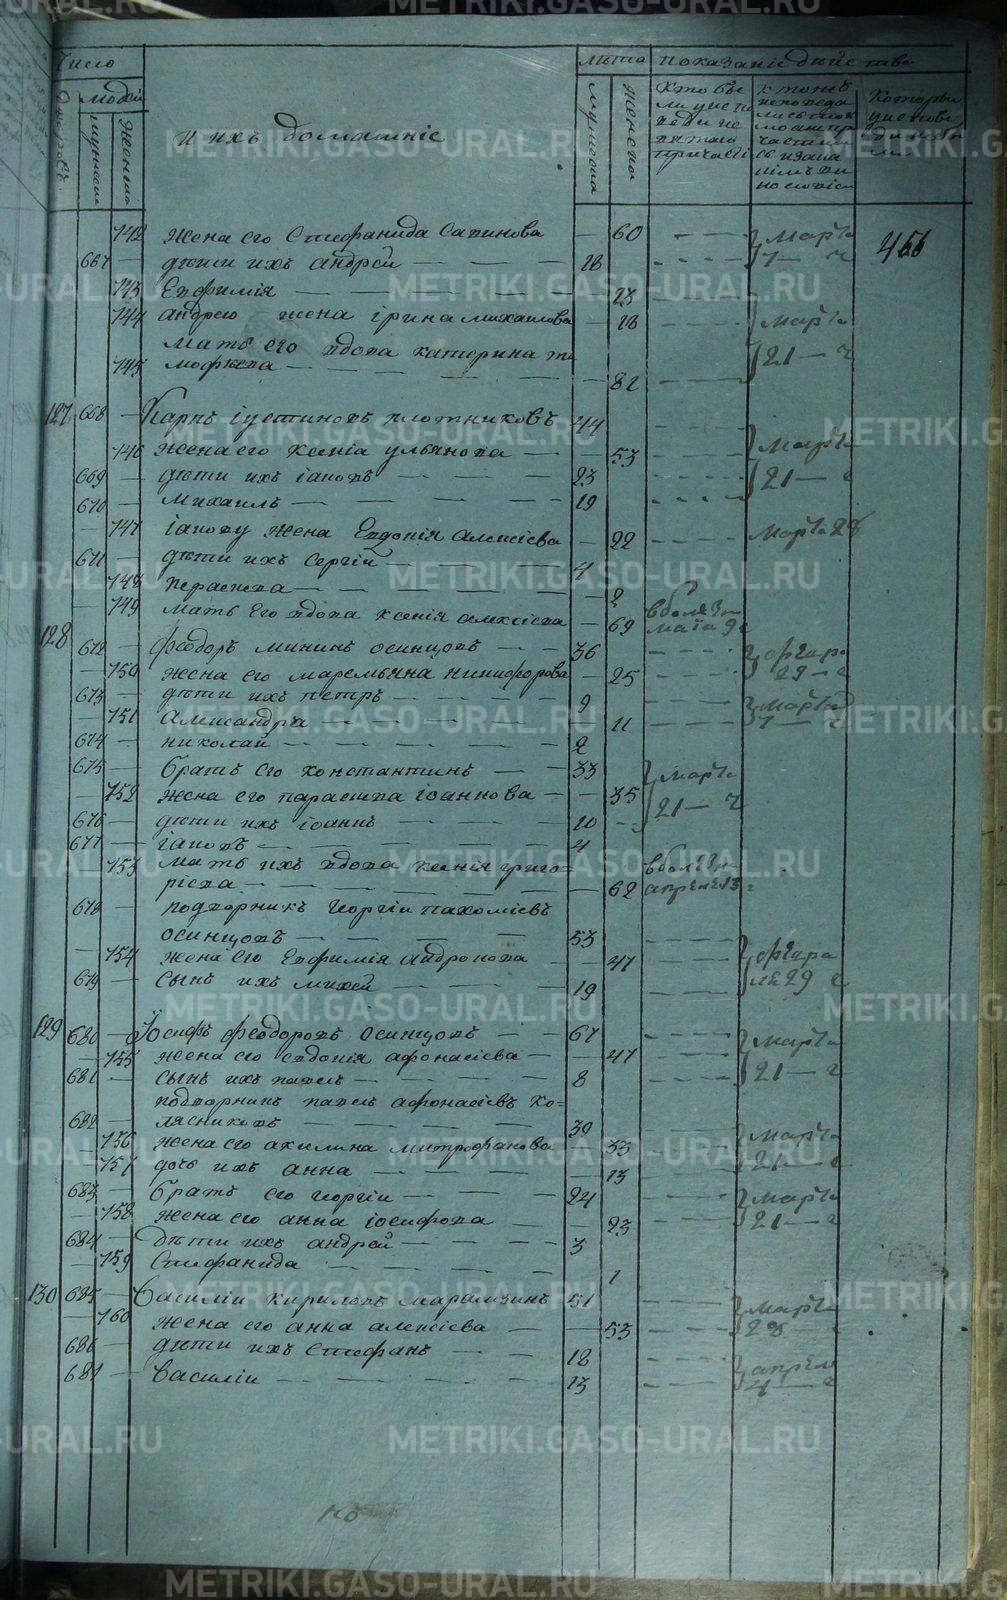 Число
людей
мужеска
женска
и ихъ домашніе
лѣта
мужеска
женска
показаніе дѣйства
кто бы
ли у испо
742 жена его Стефанида Савинова — 60 марта
667 — дѣти ихъ андрей — 28 7 — ч
466
743 Евфимія — 23
744 андрею жена ірина михаилова — 18 марта
мать его вдова катерина ти
745 мофѣева — 82 21 — ч
127 668 — Карпъ іустиновъ плотниковъ 44
746 жена его ксенія ульянова — 53 марта
669 — дѣти ихъ іаковъ — 23 21 — ч
670 — михаилъ — 19
747 іакову жена Евдокія алексіева — 22 марта 28
671 — дѣти ихъ сергіи — 4
748 параскева — 2
749 мать его вдова ксенія алексіева — 69 в болѣзни
маіа 9 ч
128 672 — феодоръ мининъ осинцовъ — 36
750 жена его маремьяна никифорова — 25 29 — ч
673 — дѣти ихъ петръ — 9 марта
751 александра — 11 7 — ч
674 — николаи — 2
675 — братъ его константинъ — 33 марта
752 жена его параскева іоаннова — 35 21 — ч
676 — дѣти ихъ іоаннъ — 10
677 — іаковъ — 4
753 мать ихъ вдова ксенія григо-
ріева — 62 в болѣзни
апреля 13 ч
678 — подворникъ георгіи пахоміевъ
осинцовъ — 53
754 жена его Евфимія андронова — 47 февра
679 — сынъ ихъ михеи — 19 ля 29 ч
129 680 — Іосифъ феодоровъ осинцовъ — 67 марта
755 жена его евдокія афонасіева — 47
681 — сынъ ихъ павелъ — 8 21 — ч
подворникъ павелъ афонасіевъ ко-
682 — лясниковъ — 39
756 жена его акилина митрофанова 33 марта
757 дочь ихъ анна — 13 21 — ч
683 — братъ его георгіи — 24 марта
758 жена его анна іосифова — 23 21 — ч
684 — дѣти ихъ андрей — 3
759 Стефанида — 1
130 685 — Василіи кириловъ марамзинъ 51 марта
760 жена его анна алексіева — 53 28 — ч
686 — дѣти ихъ Стефанъ — 18
687 — василіи — 13 апреля
4 — ч
METRIKI.GASO-URAL.RU